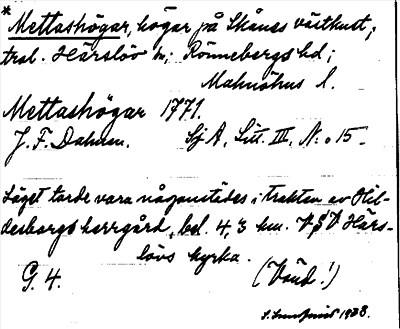 * Mettashögar, högar på Skånes västkust;
tral. Härslöv sn; Rönnebergs hd;
Malmöhus l.
Mettashögar 1771.
J. F. Dahman. Sj A, Litt. III, N:o 15.
Läget torde vara någonstädes i trakten av Hil-
desborgs herrgård, bel. 4,3 km. VSV Härs-
lövs kyrka.
G. 4. (Vänd!)
1928.